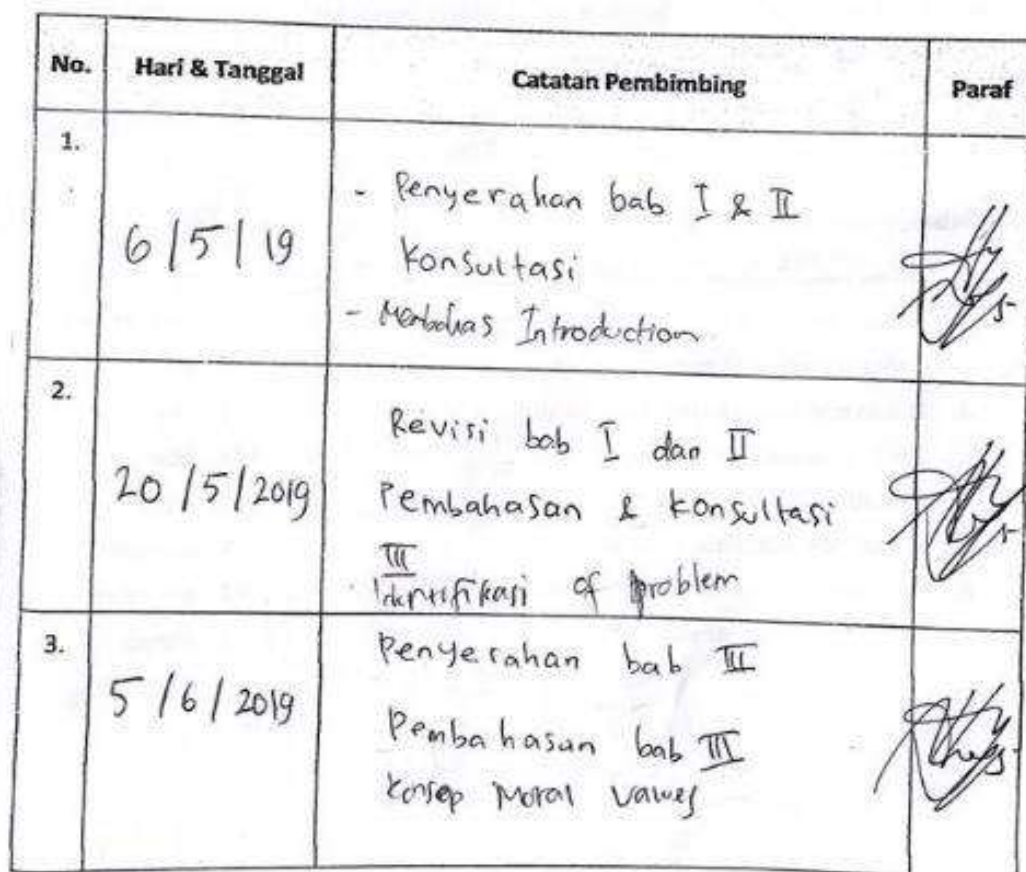 No. Hari & Tanggal Catatan Pembimbing Paraf
1.
6/5/19
- Penyerahan bab I & II
Konsultasi
- Membahas Introduction.
2.
20/5/2019
Revisi bab I dan II
Pembahasan & Konsultasi
III
Identifikasi of problem
3.
5/6/2019
Penyerahan bab III
Pembahasan bab III
Konsep Moral Values